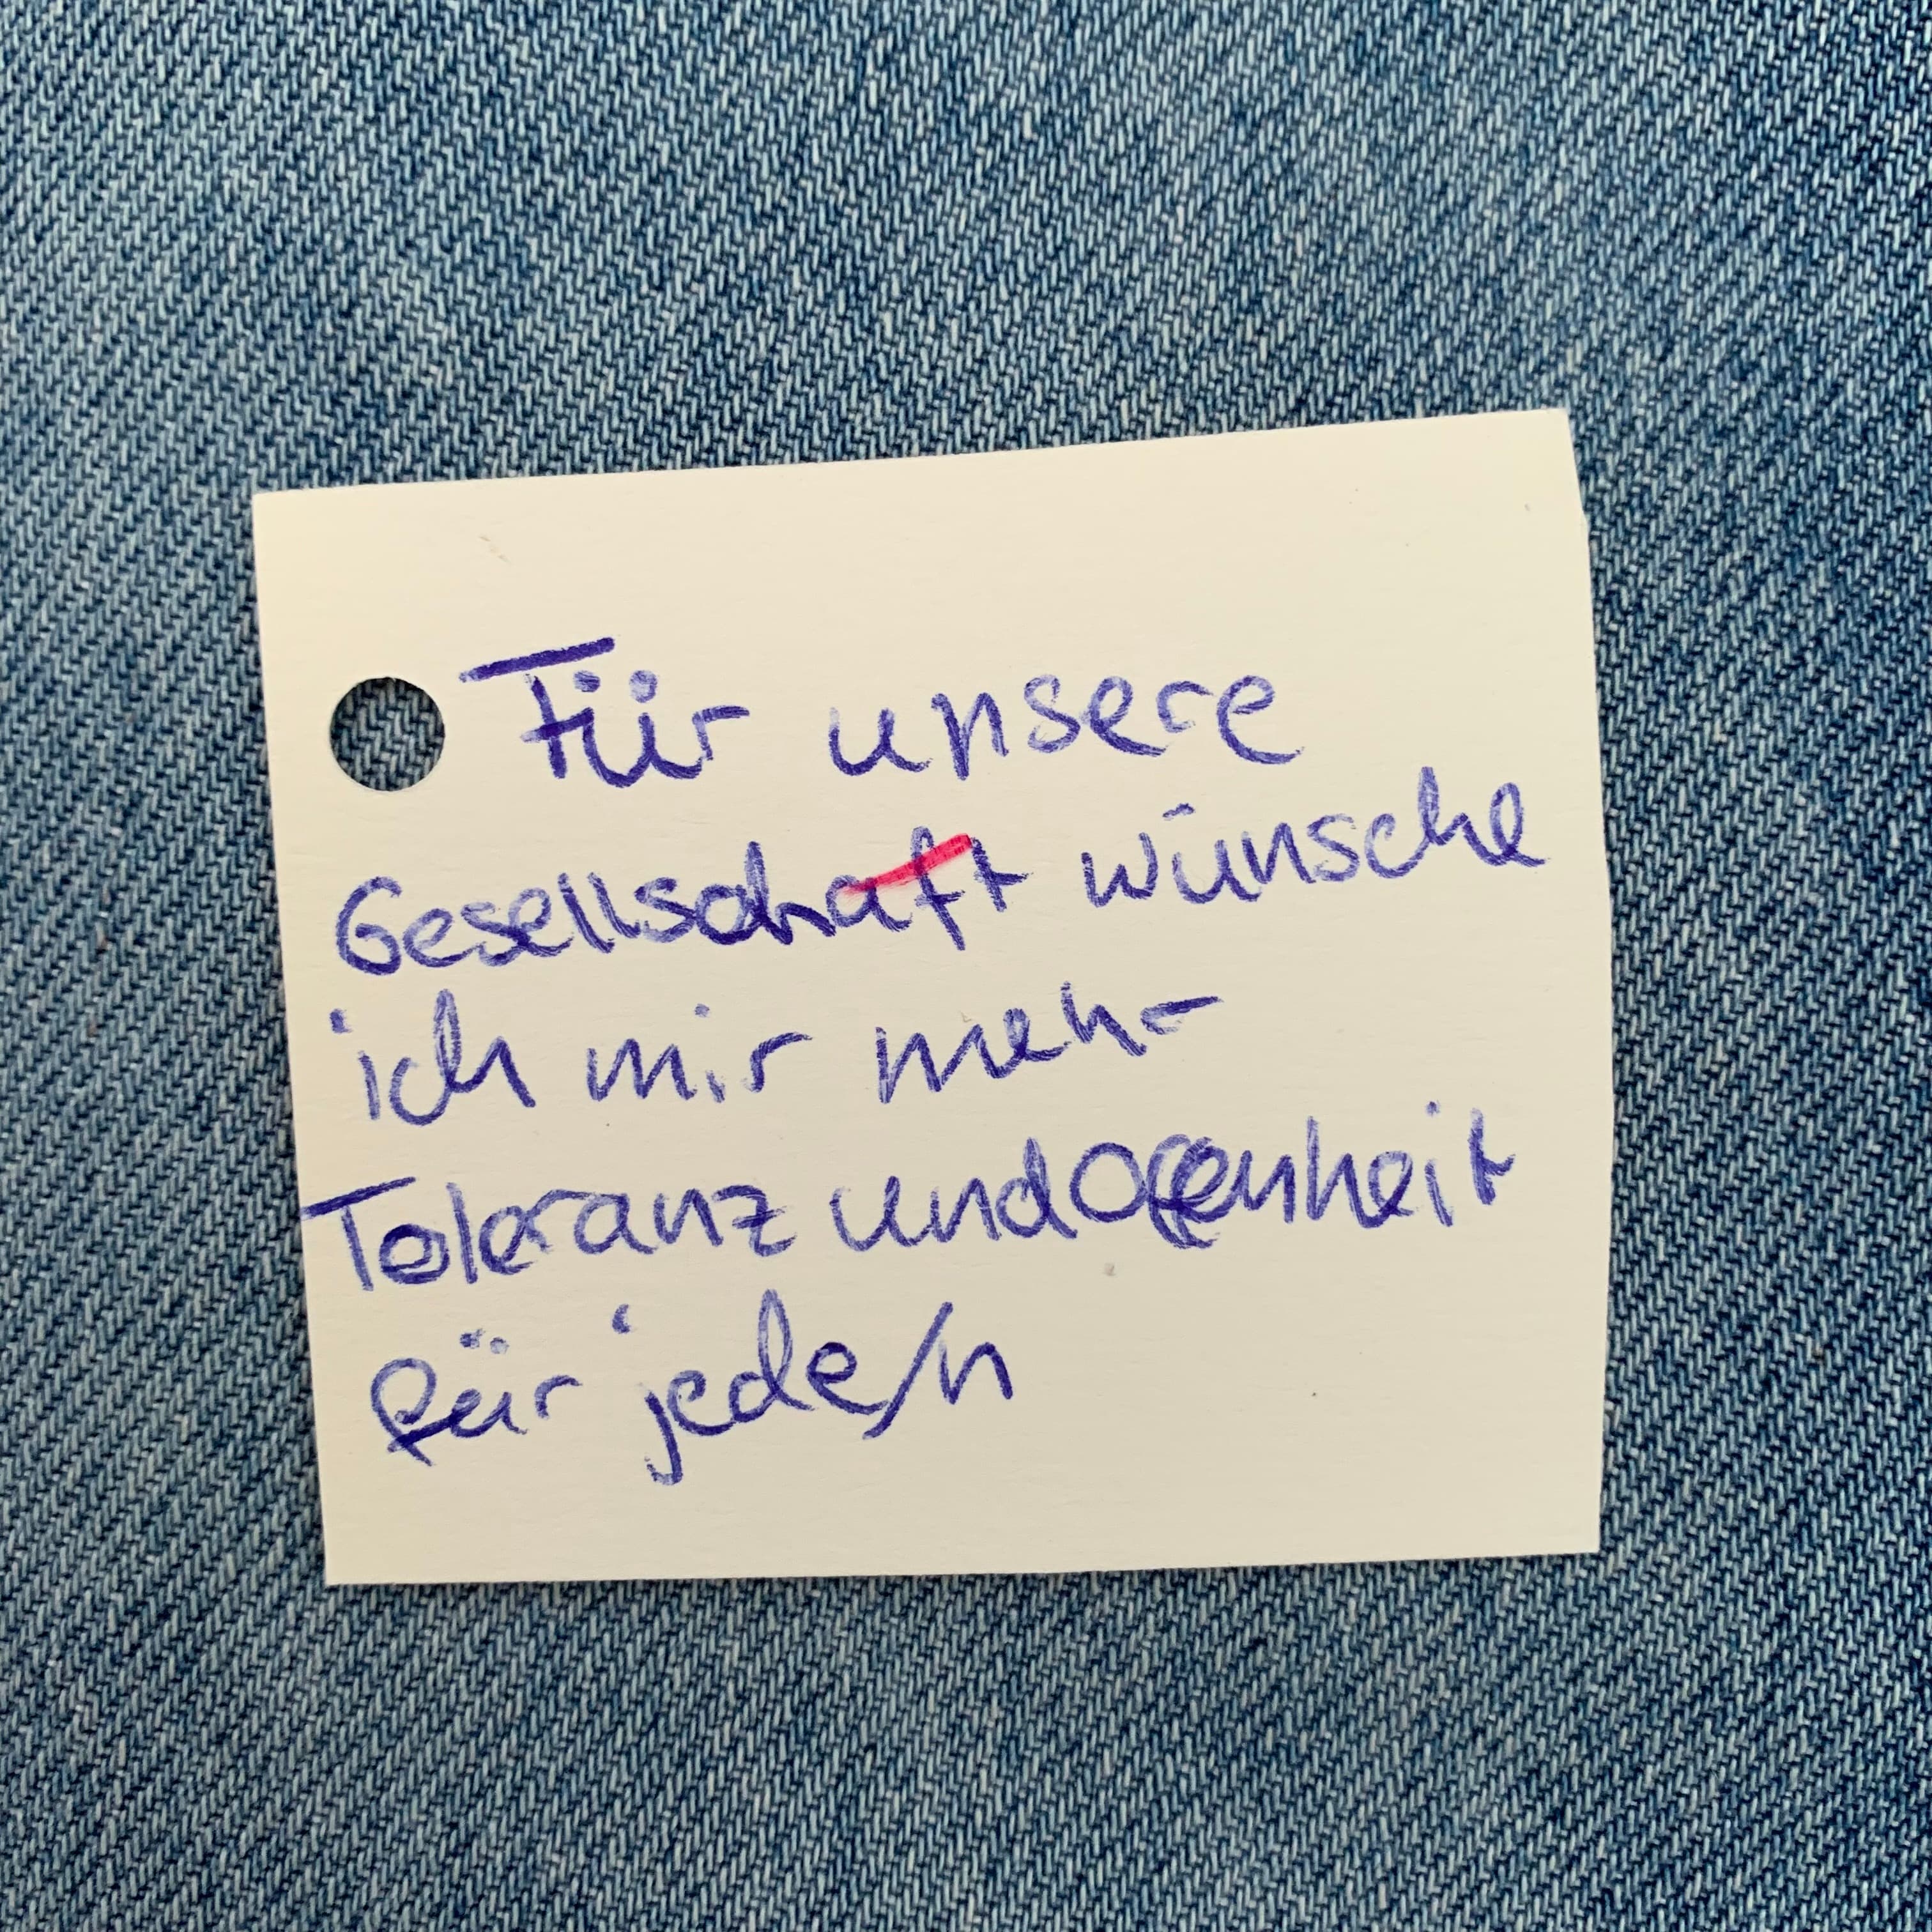 Für unsere
Gesellschaft wünsche
ich mir mehr
Toleranz und Offenheit
für jede/n